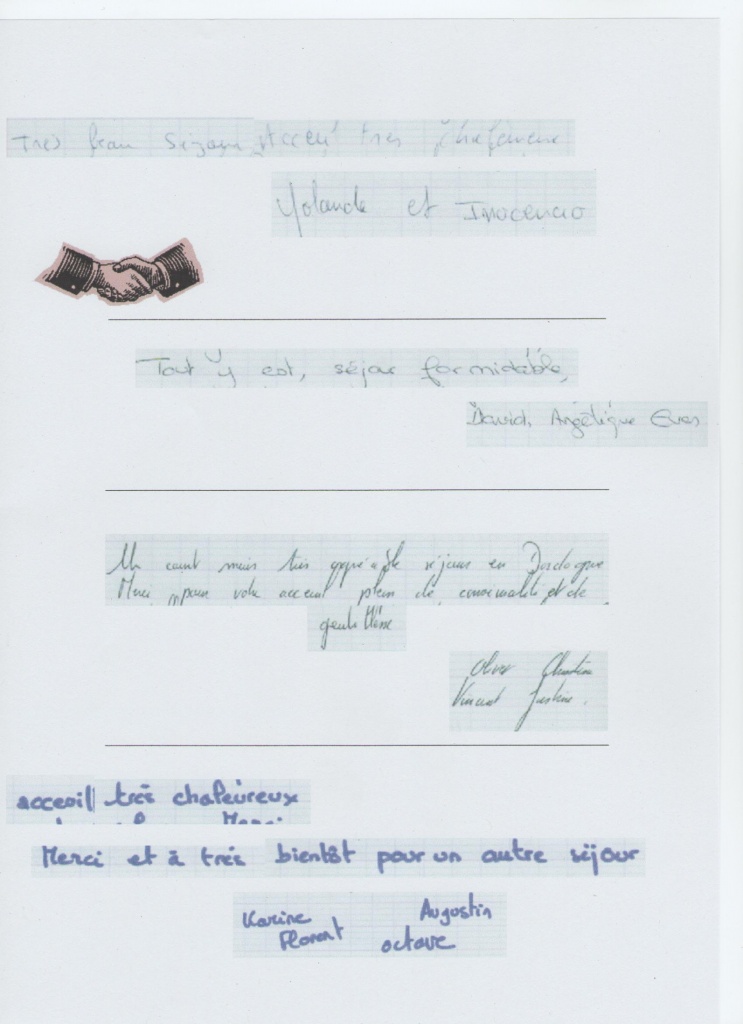 Très beau séjour Acceuil très chaleureux
Yolande et Inocencio
Tout y est, séjour formidable,
David, Angélique Eves
Un court mais très appréciable séjour en Dordogne
Merci pour votre accueil plein de convivialité et de
gentillesse
Olivier Christine
Vincent Justine.
acceuil très chaleureux
Merci et à très bientôt pour un autre séjour
Karine Augustin
Florent octave